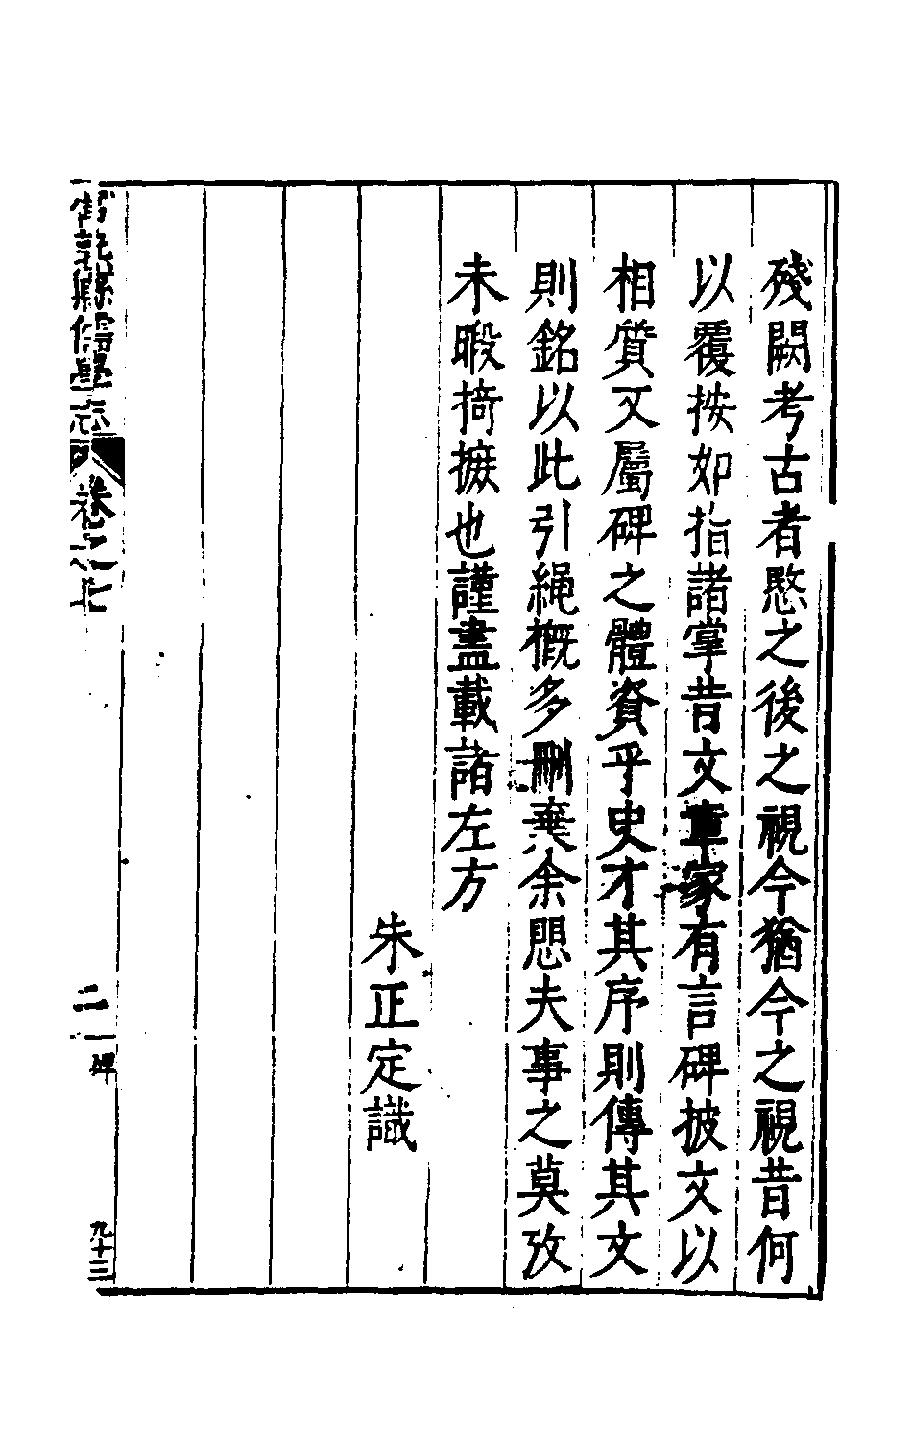 殘闕考古者愍之後之視今猶今之視昔何
以覆按如指諸掌昔文章家有言碑披文以
相質文屬碑之體資乎史才其序則傳其文
則銘以此引繩概多刪棄余思夫事之莫攷
未暇掎摭也謹盡載諸左方
朱正定識
縣儒學志
卷之七
二
碑
九十三